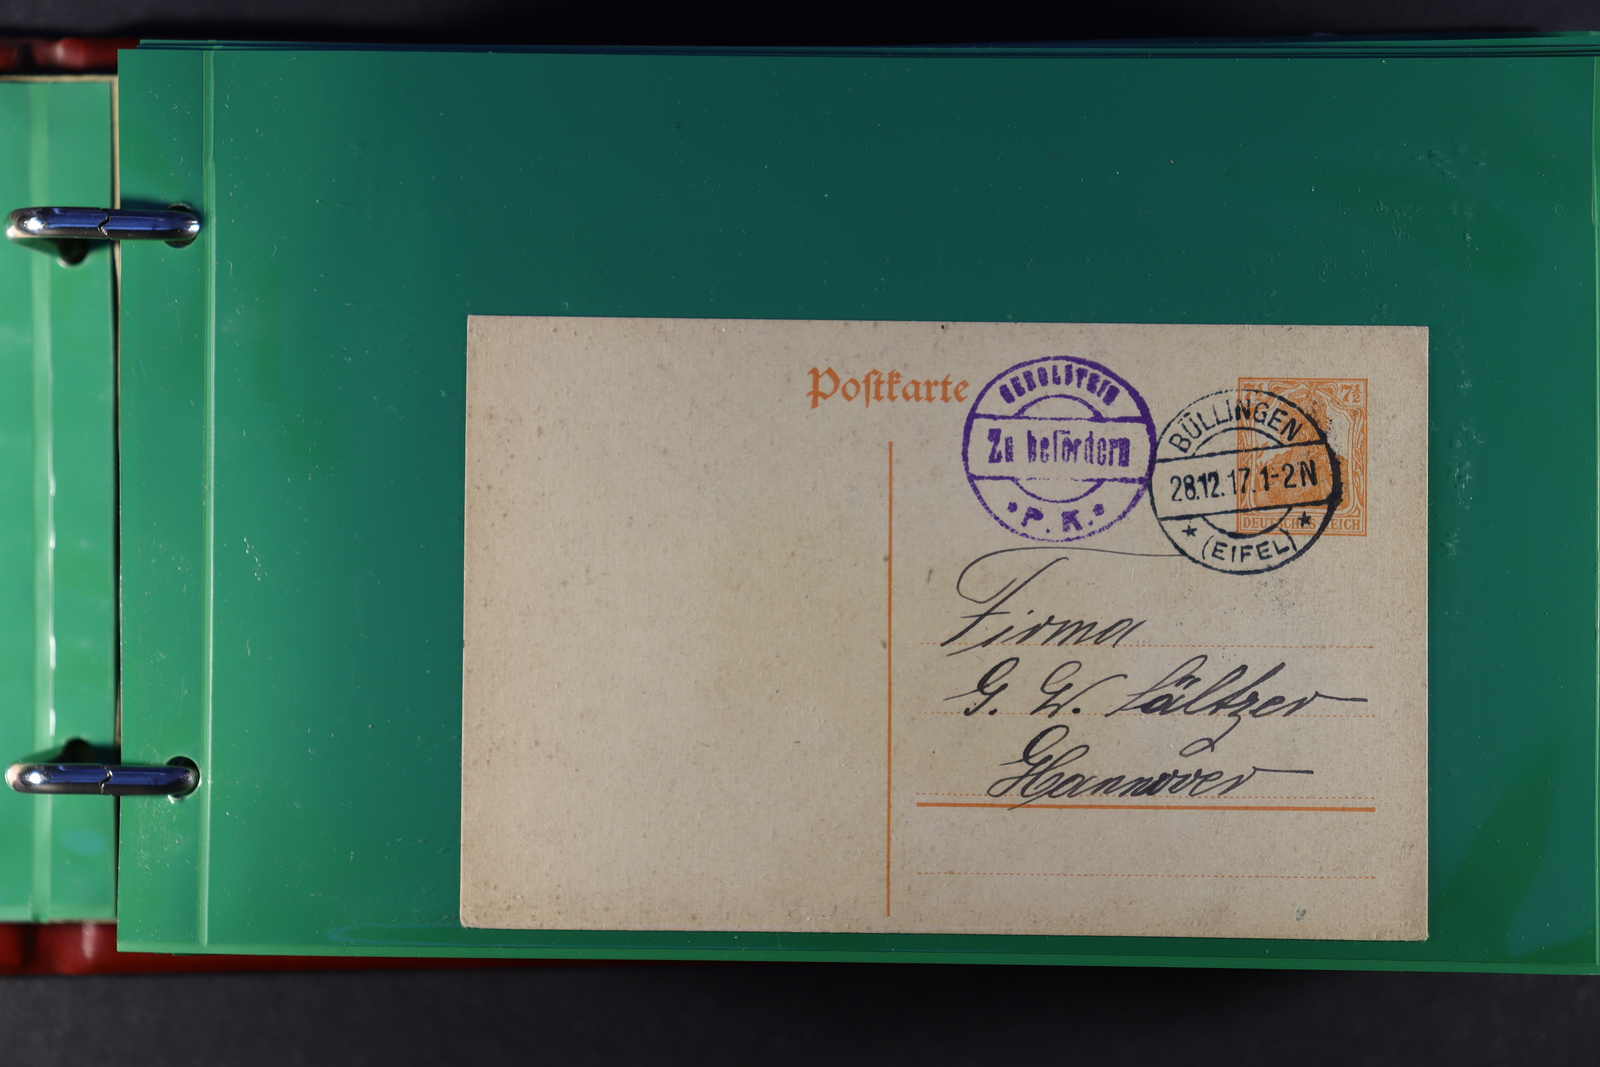 Postkarte
GEROLSTEIN
Zu befördern
* P. K. *
BÜLLINGEN
28.12.17.1-2N
* (EIFEL) *
7½ 7½
DEUTSCHES REICH
Firma
G. W. Sältzer
Hannover